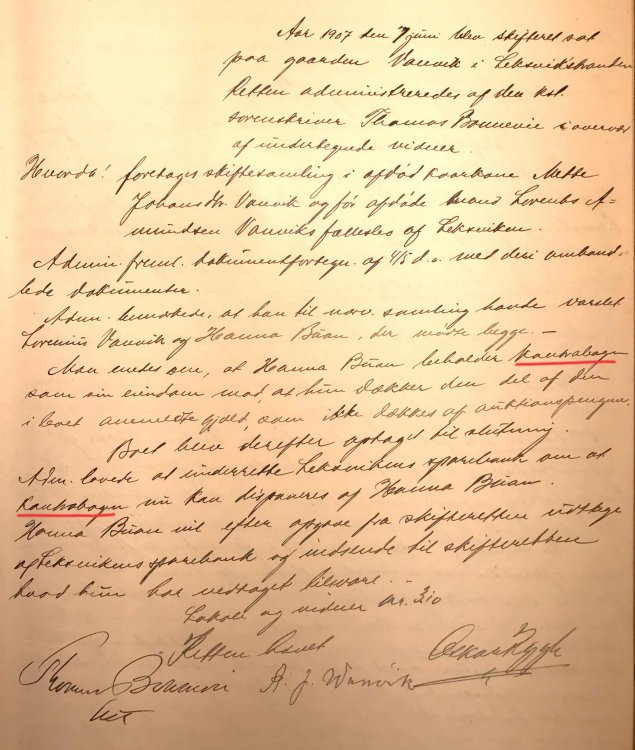 Aar 1907 den 7 juni blev skifteret sat
paa gaarden Vanvik i Leksvikstranden
Retten administreredes af den kst.
sorenskriver Thomas Bonnevie i overvær
af undertegnede vidner.
Hvorda! foretoges skiftesamling i afdød kaarkone Mette
Johansdtr. Vanvik og før afdøde mand Lorents A-
mundsen Vanviks fællesbo af Leksviken.
Admin. freml. dokumentfortegn. af 4/5 d.a. med deri omband-
lede dokumenter.
Adm. bemærkede, at han til nærv. samling havde varslet
Lorenius Vanvik og Hanna Buan, der mødte begge. –
Man enedes om, at Hanna Buan beholder kontrabogen
som sin eiendom mod, at hun dækker den del af den
i boet anmeldte gjæld, som ikke dækkes af auktionspengene.
Boet blev derefter optaget til slutning.
Adm. lovede at underrette Leksvikens sparebank om at
kontrabogen nu kan disponeres af Hanna Buan.
Hanna Buan vil efter opgave fra skifteretten udtage
af Leksvikens sparebank og indsende til skifteretten
hvad hun har vedtaget tilsvare. –
Lokale og vidner kr. 3,10
Retten hævet
Thomas Bonnevie A. J. Wanvik Oskar Rygh
kst